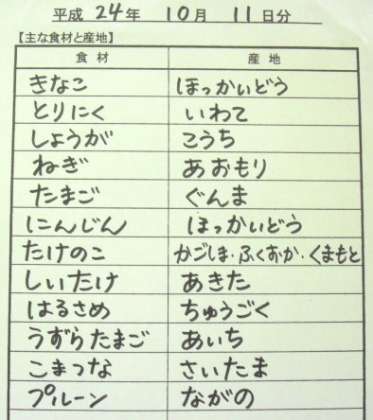 平成 24年 10月 11日分
【主な食材と産地】
食材 産地
きなこ ほっかいどう
とりにく いわて
しょうが こうち
ねぎ あおもり
たまご ぐんま
にんじん ほっかいどう
たけのこ かごしま・ふくおか・くまもと
しいたけ あきた
はるさめ ちゅうごく
うずらたまご あいち
こまつな さいたま
プルーン ながの